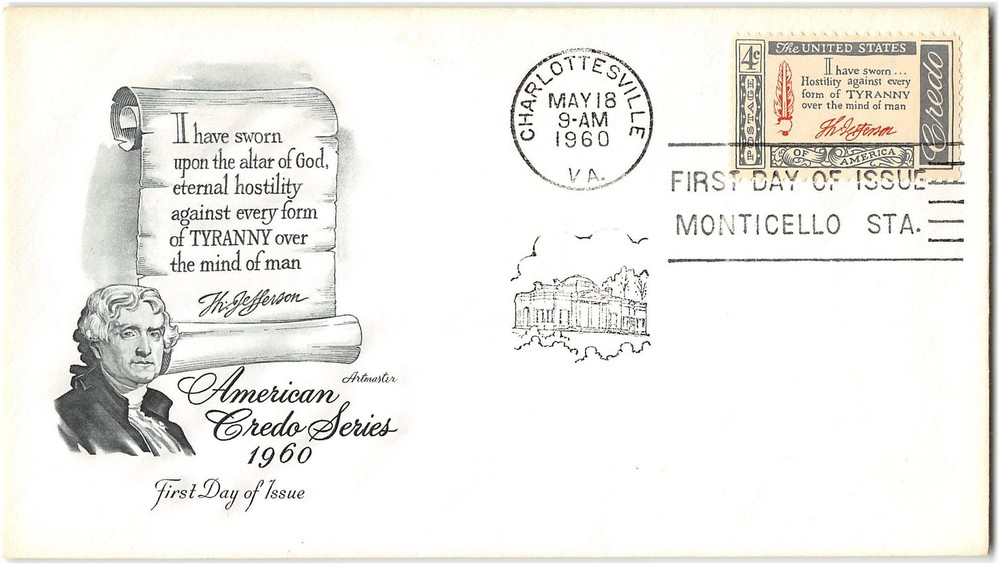 I have sworn
upon the altar of God,
eternal hostility
against every form
of TYRANNY over
the mind of man
Th: Jefferson
Artmaster
American
Credo Series
1960
First Day of Issue
CHARLOTTESVILLE
MAY 18
9-AM
1960
VA.
4c
The UNITED STATES
I have sworn ...
Hostility against every
form of TYRANNY
over the mind of man
Th: Jefferson
POSTAGE
OF AMERICA
Credo
FIRST DAY OF ISSUE
MONTICELLO STA.